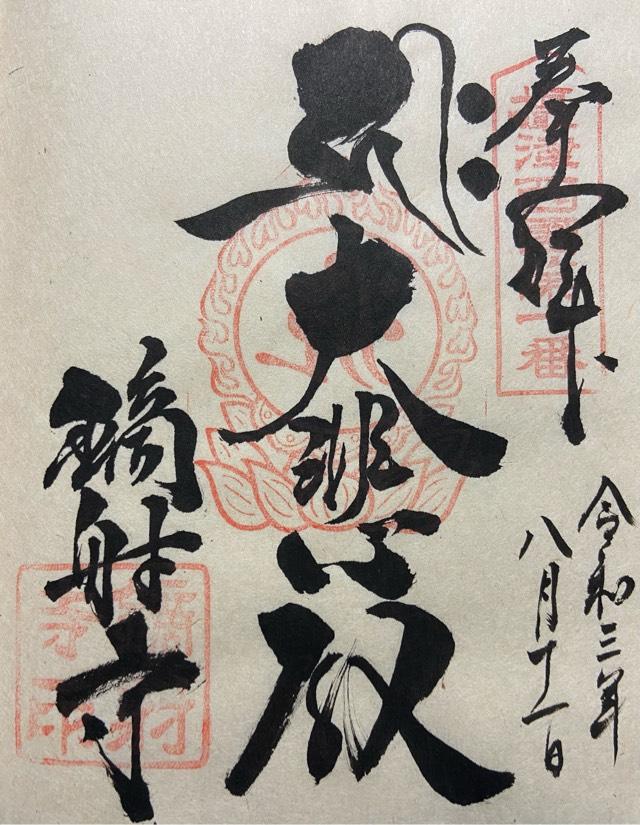 奉拝
摂津西国第一番
令和三年
八月十一日
大悲殿
鏑射寺
鏑射
寺印